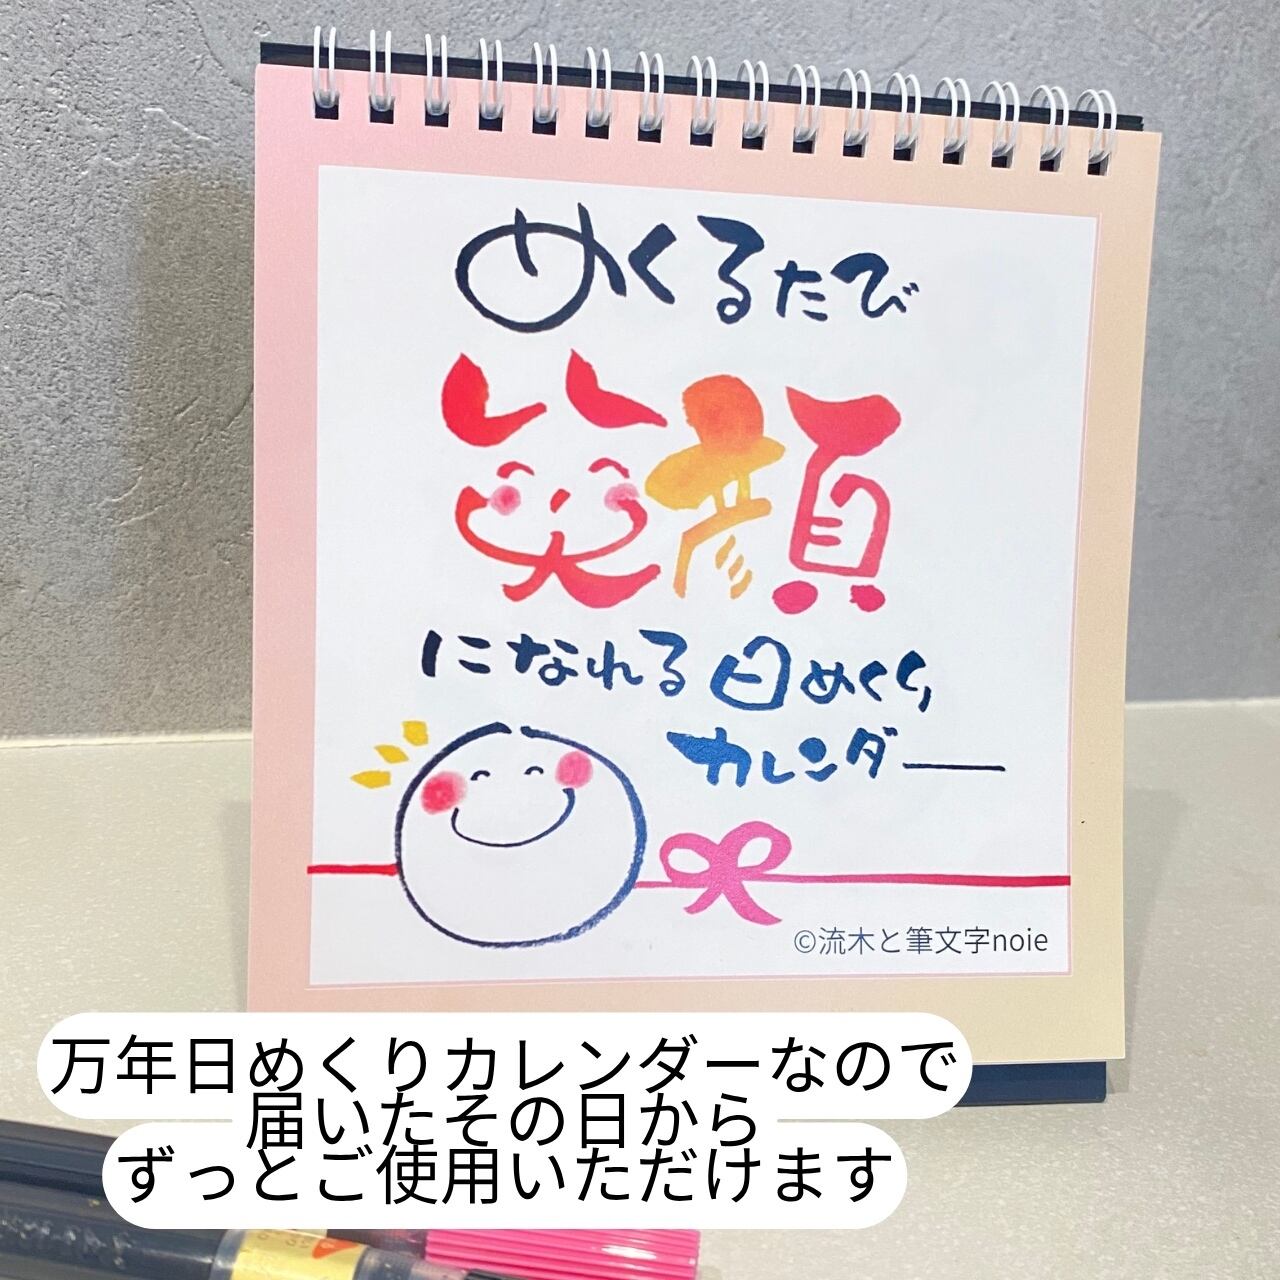 めくるたび
笑顔
になれる日めくり
カレンダー
©流木と筆文字noie
万年日めくりカレンダーなので
届いたその日から
ずっとご使用いただけます